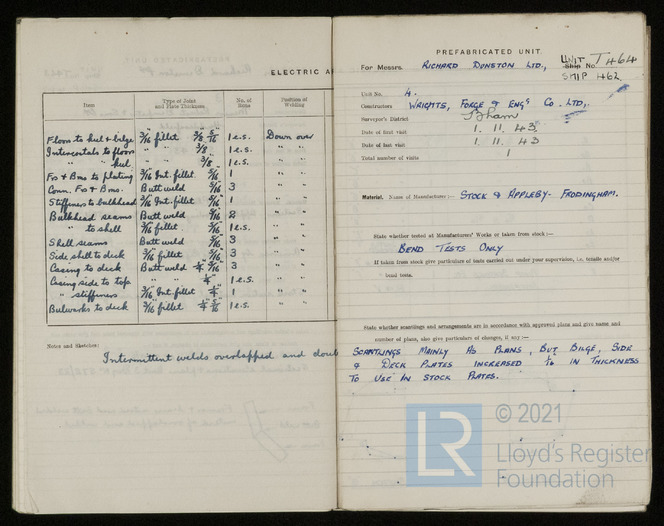 ELECTRIC A
Item Type of Joint and Plate Thickness No. of Runs Position of Welding
Floors to keel & bilge 3/16 fillet 3/8 5/16 1 e.s. Down over
Intercostals to floors " " 3/8 1 e.s. " "
" " keel " " 3/8 1 e.s. " "
Frs & Bms to plating 3/16 Int. fillet 5/16 1 " "
Conn. Frs & Bms. Butt weld 5/16 3 " "
Stiffeners to bulkhead 3/16 Int. fillet 5/16 1 " "
Bulkhead seams Butt weld 5/16 2 " "
" to shell 3/16 fillet 5/16 1 e.s. " "
Shell seams Butt weld 5/16 3 " "
Side shell to deck 3/16 fillet 5/16 3 " "
Casing to deck Butt weld 1/4 5/16 3 " "
Casing side to top " " 1/4 1 e.s. " "
" stiffeners 3/16 Int. fillet 1/4 1 " "
Bulwarks to deck 3/16 fillet 1/4 5/16 1 e.s. " "
Notes and Sketches:
Intermittent welds overlapped and doub
PREFABRICATED UNIT.
For Messrs. RICHARD DUNSTON LTD., UNIT Ship No T464
SHIP 462
Unit No. 4.
Constructors WRIGHTS, FORGE & ENGG CO. LTD.,
Surveyor's District B'ham
Date of first visit 1. 11. 43.
Date of last visit 1. 11. 43
Total number of visits 1
Material. Name of Manufacturer:- STOCK & APPLEBY- FRODINGHAM.
State whether tested at Manufacturers' Works or taken from stock:-
BEND TESTS ONLY
If taken from stock give particulars of tests carried out under your supervision, i.e. tensile and/or
bend tests.
State whether scantlings and arrangements are in accordance with approved plans and give name and
number of plans, also give particulars of changes, if any:-
SCANTLINGS MAINLY AS PLANS, BUT BILGE, SIDE
& DECK PLATES INCREASED 1/16 IN THICKNESS
TO USE IN STOCK PLATES.
© 2021
LR Lloyd's Register
Foundation